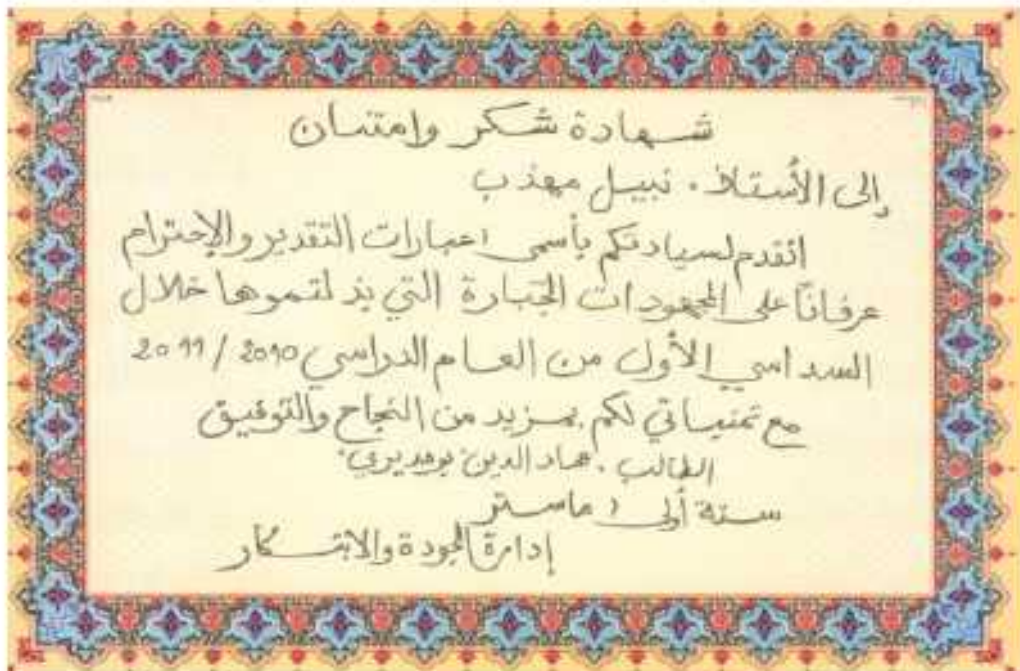 شهادة شكر وامتنان
إلى الأستاذ. نبيل مهذب
اتقدم لسيادتكم بأسمى اعبارات التقدير والإحترام
عرفانًا على المجهودات الجبارة التي بذلتموها خلال
السداسي الأول من العام الدراسي 2010 / 2011
مع تمنياتي لكم بمزيد من النجاح والتوفيق
الطالب. عماد الدين بوحديري
سنة أولى ماستر
إدارة الجودة والابتكار